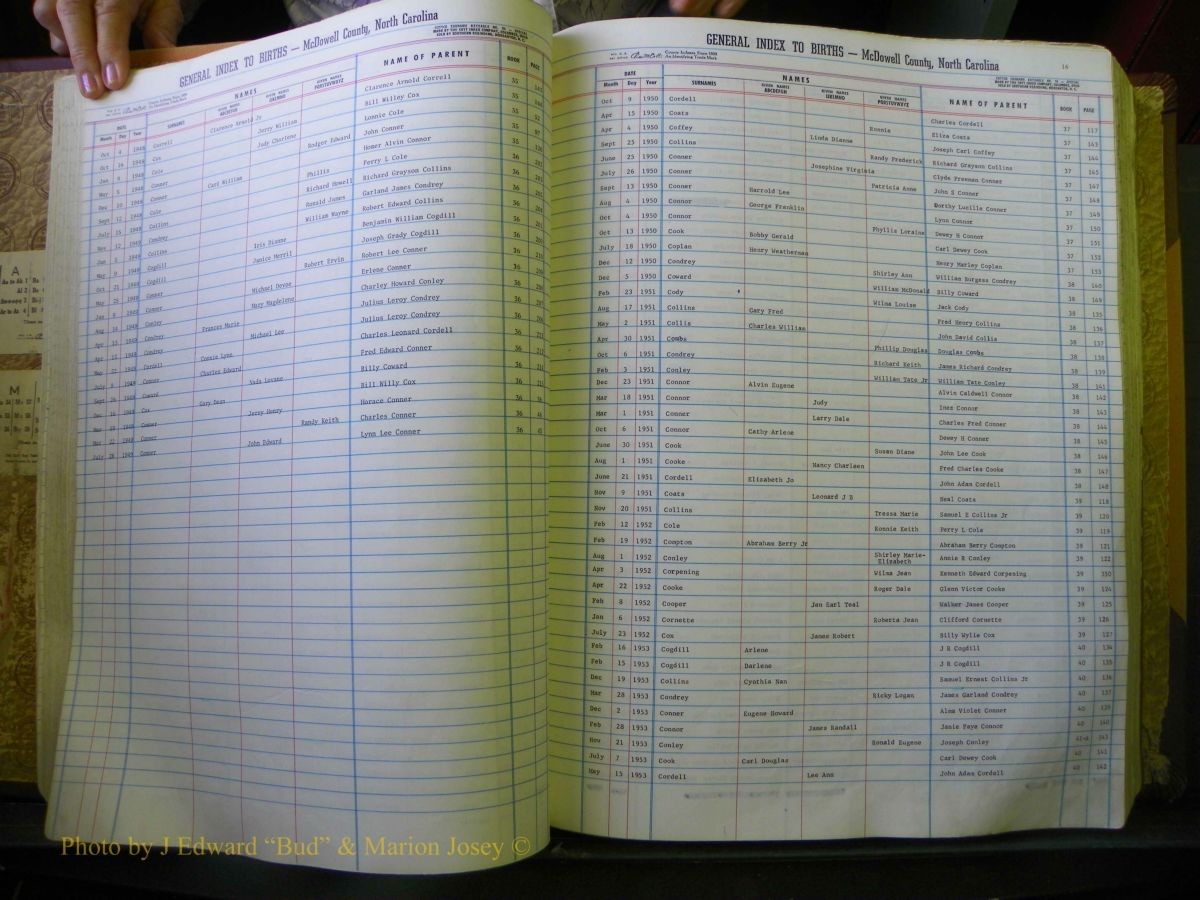 GENERAL INDEX TO BIRTHS — McDowell County, North Carolina
NAMES
DATE
Month Day Year SURNAMES GIVEN NAMES ABCDEFGH GIVEN NAMES IJKLMNO GIVEN NAMES PQRSTUVWXYZ NAME OF PARENT BOOK PAGE
Oct 4 1948 Correll Clarence Arnold Jr Clarence Arnold Correll 35
Oct 16 1948 Cox Jerry William Bill Willey Cox 35
Jan 8 1948 Cole Judy Charlene Lonnie Cole 35
May 5 1948 Conner Rodger Edward John Conner 35
Dec 10 1948 Conner Carl William Homer Alvin Connor
Sept 12 Cole Phillis Perry L Cole 36
July 15 1949 Collins Richard Howell Richard Grayson Collins 36
Nov 12 1949 Condrey Ronald James Garland James Condrey 36
Jan 1949 Collins William Wayne Robert Edward Collins 36
May 9 1949 Cogdill Iris Dianne Benjamin William Cogdill 36
Oct 21 1949 Cogdill Janice Merril Joseph Grady Cogdill 36
May 25 1949 Conner Robert Ervin Robert Lee Conner 36
Jan 8 1949 Conner Michael Devoe Erlene Conner 36
Aug 14 1949 Conley Mary Magdelene Charley Howard Conley 36
Apr 15 1949 Condrey Frances Marie Julius Leroy Condrey 36
Apr 15 1949 Condrey Michael Lee Julius Leroy Condrey 36
May 22 1949 Cordell Connie Lynn Charles Leonard Cordell 36
July 5 1949 Conner Charles Edward Fred Edward Conner 36
Sept 24 1949 Coward Vada Lovane Billy Coward 36
Dec 16 1949 Cox Gary Dean Bill Willy Cox 36
Mar 19 1949 Conner Jerry Henry Horace Conner 36
Mar 22 1949 Conner Randy Keith Charles Conner 36
July 28 1949 Conner John Edward Lynn Lee Conner 36
GENERAL INDEX TO BIRTHS — McDowell County, North Carolina 16
DATE NAMES
Month Day Year SURNAMES GIVEN NAMES ABCDEFGH GIVEN NAMES IJKLMNO GIVEN NAMES PQRSTUVWXYZ NAME OF PARENT BOOK PAGE
Oct 9 1950 Cordell Charles Cordell 37 117
Apr 15 1950 Coats Ronnie Eliza Coats 37 143
Apr 4 1950 Coffey Linda Dianne Joseph Carl Coffey 37 144
Sept 25 1950 Collins Randy Frederick Richard Grayson Collins 37
June 25 1950 Conner Josephine Virginia Clyde Freeman Conner 37 147
July 26 1950 Conner Patricia Anne John S Conner 37
Sept 13 1950 Conner Harrold Lee Dorthy Lucille Conner 37 149
Aug 4 1950 Connor George Franklin Lynn Connor 37 150
Oct 4 1950 Connor Phyllis Loraine Dewey H Connor 37
Oct 13 1950 Cook Bobby Gerald Carl Dewey Cook 37
July 18 1950 Coplan Henry Weatherman Henry Marley Coplan 37
Dec 12 1950 Condrey Shirley Ann William Burgess Condrey 38 140
Dec 5 1950 Coward William McDonald Billy Coward 38 149
Feb 23 1951 Cody Wilma Louise Jack Cody 38 135
Aug 17 1951 Collins Gary Fred Fred Henry Collins 38 136
May 2 1951 Collis Charles William John David Collis 38 137
Apr 30 1951 Combs Phillip Douglas Douglas Combs 38 138
Oct 6 1951 Condrey Richard Keith James Richard Condrey 38 139
Feb 3 1951 Conley William Tate Jr William Tate Conley 38 141
Dec 23 1951 Connor Alvin Eugene Alvin Caldwell Connor 38 142
Mar 18 1951 Conner Judy Ines Conner 38 143
Mar 1 1951 Conner Larry Dale Charles Fred Conner 38 144
Oct 6 1951 Connor Cathy Arlene Dewey H Conner 38 145
June 30 1951 Cook Susan Diane John Lee Cook 38 146
Aug 1 1951 Cooke Nancy Charleen Fred Charles Cooke 38 147
June 21 1951 Cordell Elizabeth Jo John Adam Cordell 38 148
Nov 9 1951 Coats Leonard J D Neal Coats 39 118
Nov 20 1951 Collins Tressa Marie Samuel E Collins Jr 39 120
Feb 12 1952 Cole Ronnie Keith Perry L Cole 39 119
Feb 19 1952 Compton Abraham Berry Jr Abraham Berry Compton 39 121
Aug 1 1952 Conley Shirley Marie-Elizabeth Annie R Conley 39 122
Apr 3 1952 Corpening Wilma Jean Kenneth Edward Corpening 39 350
Apr 22 1952 Cooke Roger Dale Glenn Victor Cooke 39 124
Feb 8 1952 Cooper Jan Earl Teal Walker James Cooper 39 125
Jan 6 1952 Cornette Roberta Jean Clifford Cornette 39 126
July 23 1952 Cox James Robert Billy Wylie Cox 39 127
Feb 16 1953 Cogdill Arlene J R Cogdill 40 134
Feb 15 1953 Cogdill Darlene J R Cogdill 40 135
Dec 19 1953 Collins Cynthia Nan Samuel Ernest Collins Jr 40 136
Mar 28 1953 Condrey Ricky Logan James Garland Condrey 40 137
Dec 2 1953 Conner Eugene Howard Alma Violet Conner 40 139
Feb 28 1953 Connor James Randall Janie Faye Connor 40 140
Nov 21 1953 Conley Ronald Eugene Joseph Conley
July 7 1953 Cook Carl Douglas Carl Dewey Cook 40 141
May 15 1953 Cordell Lee Ann John Adam Cordell 40 142
Photo by J Edward “Bud” & Marion Josey ©